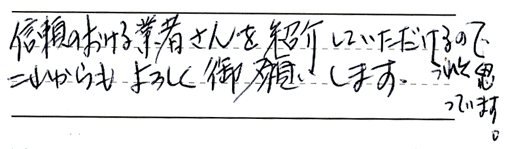 信頼のおける業者さんを紹介していただけるので
これからもよろしく御願いします。
思
っています。